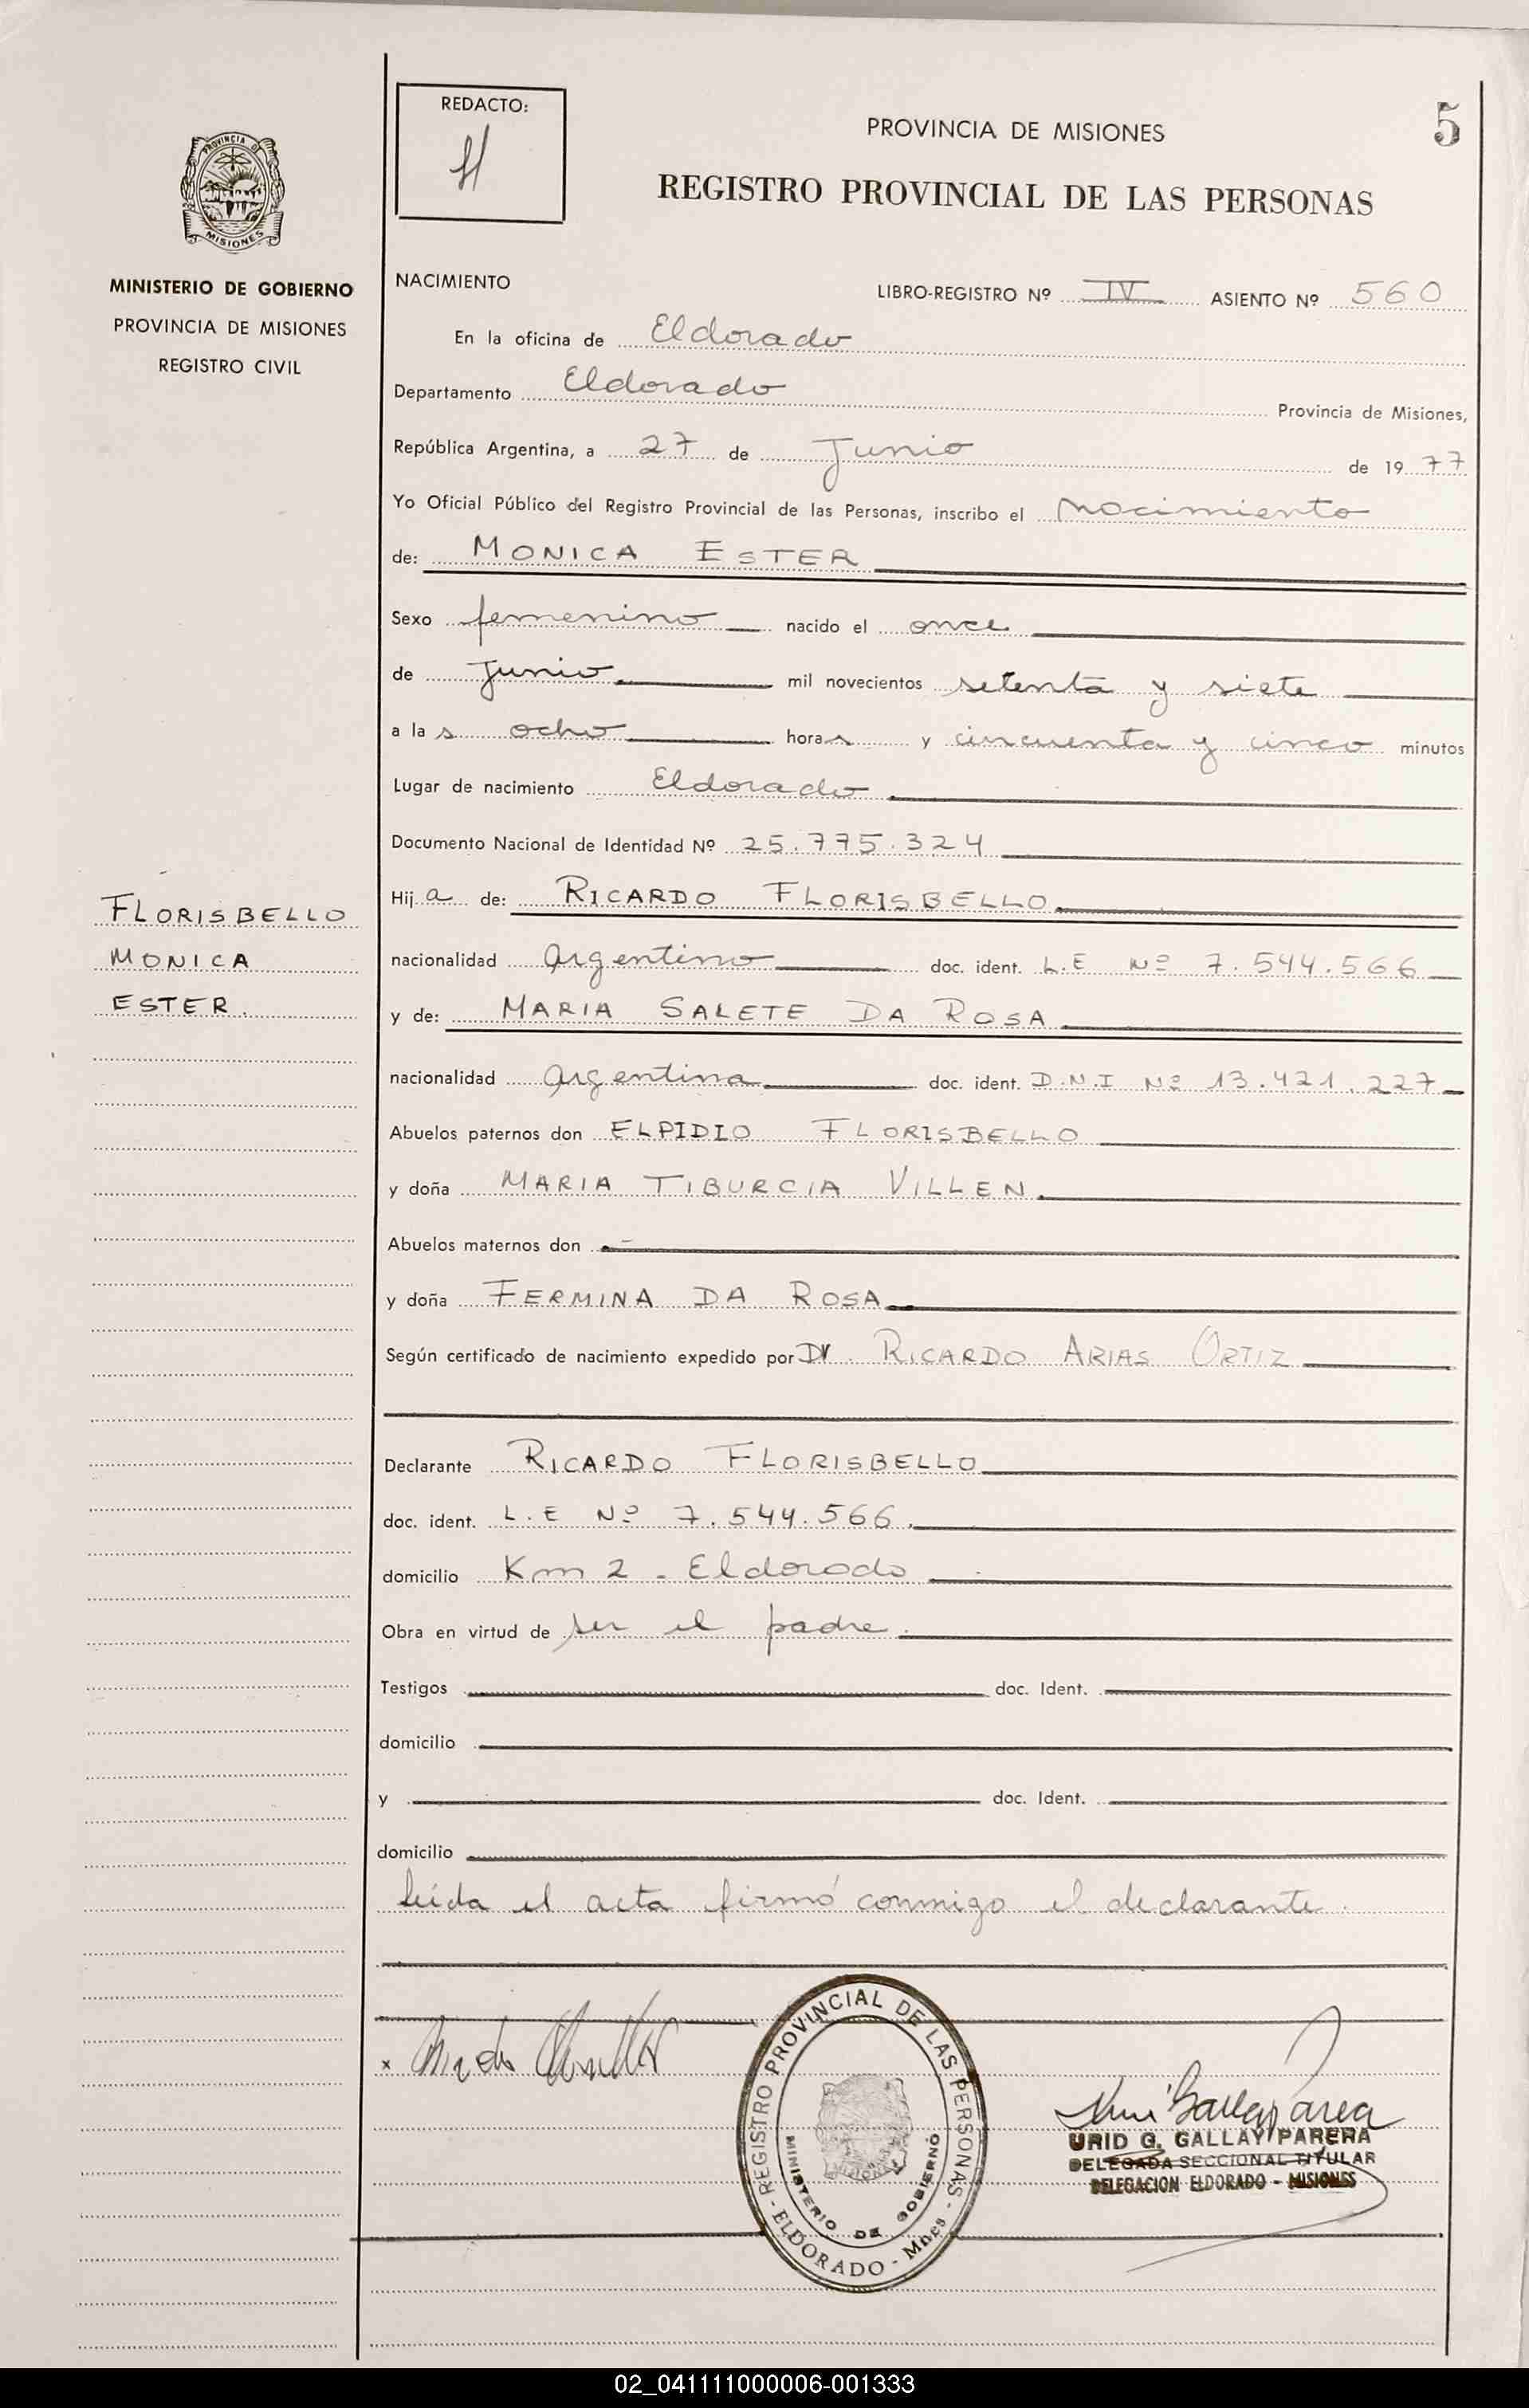 REDACTO:
PROVINCIA DE MISIONES
5
REGISTRO PROVINCIAL DE LAS PERSONAS
PROVINCIA DE
MISIONES
MINISTERIO DE GOBIERNO
PROVINCIA DE MISIONES
REGISTRO CIVIL
NACIMIENTO
LIBRO-REGISTRO Nº IV ASIENTO Nº 560
En la oficina de Eldorado
Departamento Eldorado Provincia de Misiones,
República Argentina, a 27 de Junio de 1977
Yo Oficial Público del Registro Provincial de las Personas, inscribo el nacimiento
de: MONICA ESTER
Sexo femenino nacido el once
de Junio mil novecientos setenta y siete
a las ocho horas y cincuenta y cinco minutos
Lugar de nacimiento Eldorado
Documento Nacional de Identidad Nº 25.775.324
Hija de: RICARDO FLORISBELLO
FLORISBELLO
MONICA
ESTER.
nacionalidad argentino doc. ident. L.E Nº 7.544.566
y de: MARIA SALETE DA ROSA
nacionalidad argentina doc. ident. D.N.I Nº 13.421.227
Abuelos paternos don ELPIDIO FLORISBELLO
y doña MARIA TIBURCIA VILLEN
Abuelos maternos don
y doña FERMINA DA ROSA
Según certificado de nacimiento expedido por Dr. RICARDO ARIAS ORTIZ
Declarante RICARDO FLORISBELLO
doc. ident. L.E Nº 7.544.566.
domicilio Km 2 - Eldorado
Obra en virtud de ser el padre.
Testigos doc. Ident.
domicilio
y doc. Ident.
domicilio
leída el acta firmó conmigo el declarante.
x
REGISTRO PROVINCIAL DE LAS PERSONAS
MINISTERIO DE GOBIERNO
- ELDORADO - Mnes -
URID G. GALLAY PARERA
DELEGADA SECCIONAL TITULAR
DELEGACION ELDORADO - MISIONES
02_041111000006-001333